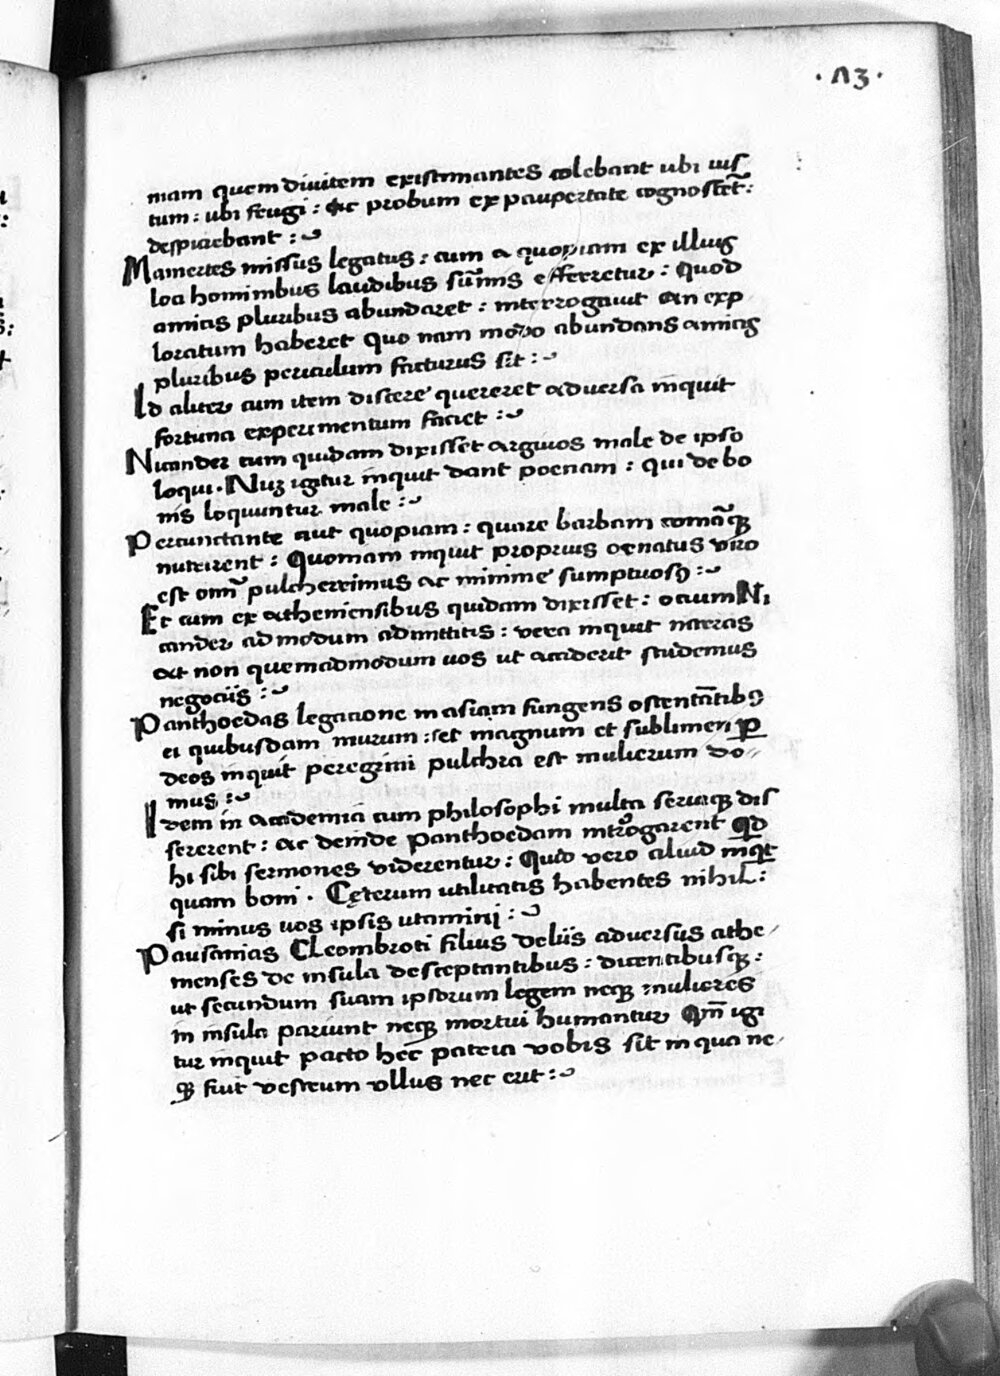 · 𐌡3 ·
niam quem diuitem existimantes colebant ubi iuſ
tum : ubi frugi : ac probum ex paupertate cognoſceret̃ :
deſpiciebant :
Mamertes miſſus legatus : cum a quopiam ex illius
loci hominibus laudibus sũmis efferretur : Quod
amicis pluribus abundaret : interrogauit an exp
loratum haberet quo nam modo abundans amicis
pluribus periculum facturus sit :
Id aliter cum item diſcere quereret aduersa inquit
fortuna experimentum faciet :
Nicander cum quidam dixiſſet argiuos male de ipso
loqui · Nũꝫ igitur inquit dant poenam : qui de bo
nis loquuntur male :
Percunctante aut quopiam : quare barbam comãqꝫ
nutrirent : Quoniam inquit proprius ornatus viro
est omniũ pulcherrimus ac minime sumptuosꝰ :
Et cum ex atheniensibus quidam dixisset : ocium Ni
cander admodum admittitis : vera inquit narras
at non quemadmodum uos ut acciderit studemus
negociis :
Panthoedas legacione in asiam fungens ostentãtibꝰ
ei quibusdam murum : set magnum et sublimem ꝑ
deos inquit peregrini pulchra est mulierum do
mus :
Idem in academia cum philosophi multa seriaqꝫ diſ
sererent : ac deinde panthoedam intrͦogarent Qd
hi sibi sermones viderentur : Quid vero aliud inq̃t
quam boni · Cęterum utilitatis habentes nihil :
si minus uos ipsis utamini :
Pausanias Cleombroti filius deliis aduersus athe
nienses de insula desceptantibus : dicentibusqꝫ :
ut secundum suam ipsorum legem neqꝫ mulieres
in insula pariunt neqꝫ mortui humantur Qm̃ igi
tur inquit pacto hec patria vobis sit in qua ne
qꝫ fuit vestrum vllus nec erit :